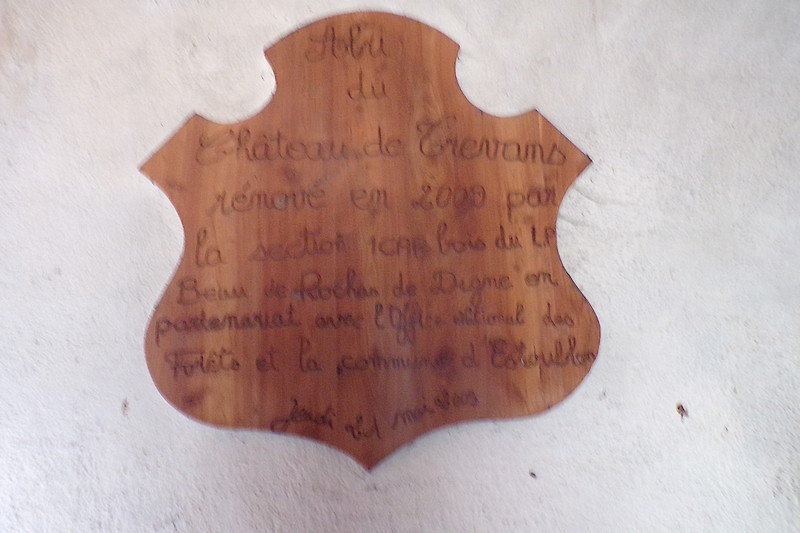 Abri
du
Château de Trevans
rénové en 2009 par
la section 1CAP bois du L.P
Beau de Rochas de Digne en
partenariat avec l'Office national des
Forêts et la commune d'Estoublon
Jeudi 21 mai 2009